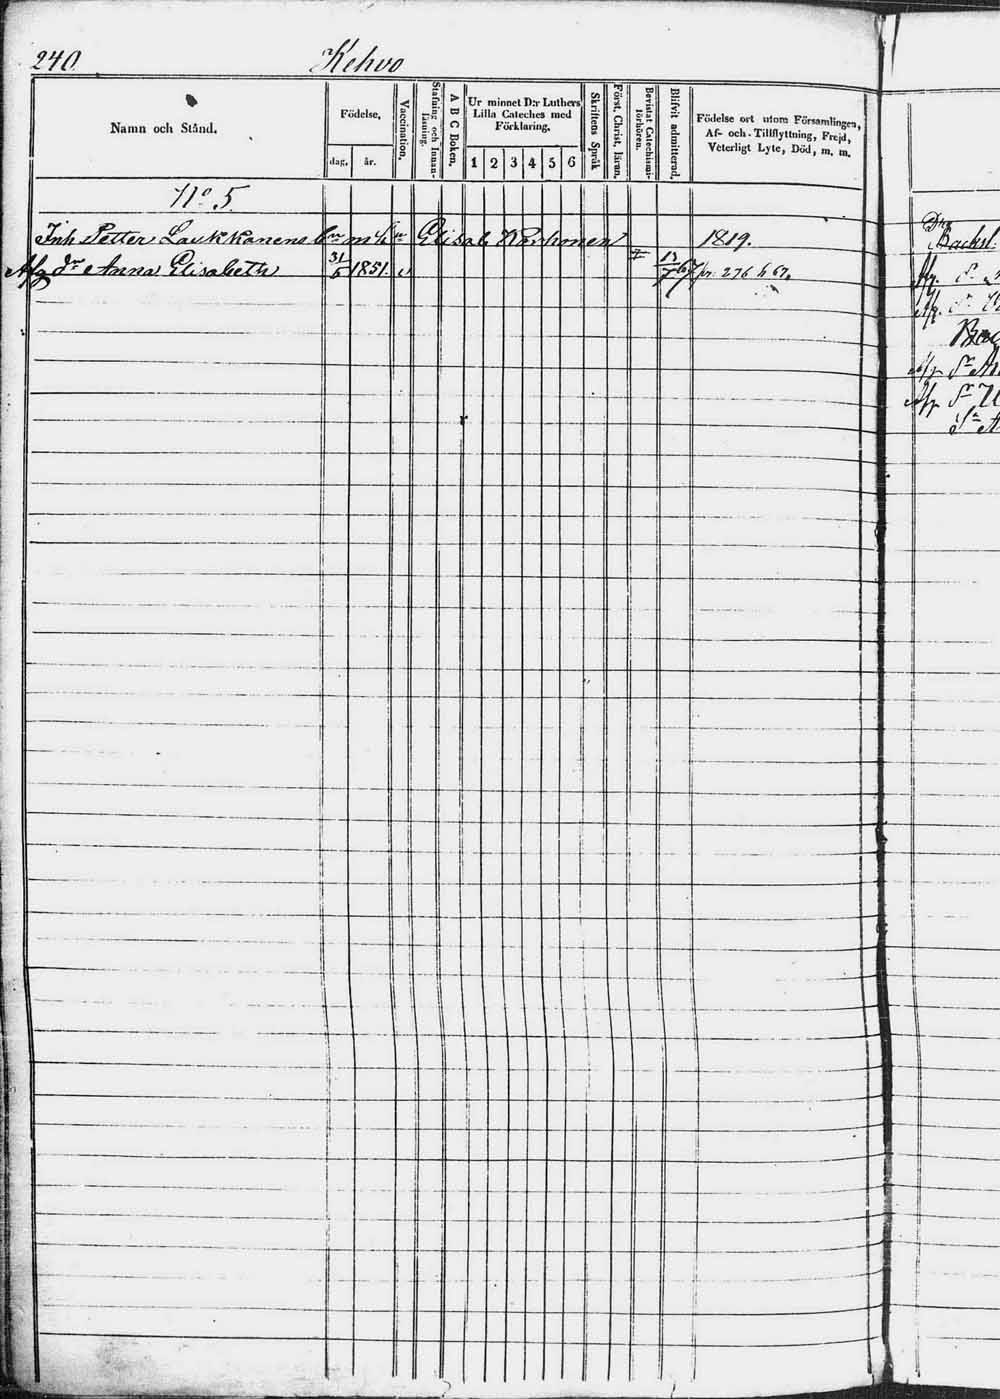 240. Kehvo
Namn och Stånd.
Födelse,
dag. år.
Vaccination.
Stafning och Innanläsning.
A B C Boken.
Ur minnet D:r Luthers
Lilla Cateches med
Förklaring.
1 2 3 4 5 6
Skriftens Språk
Först. Christ. läran.
Bevistat Catechismiförhören.
Blifvit admitterad.
Födelse ort utom Församlingen,
Af- och Tillflyttning, Frejd,
Veterligt Lyte, Död, m. m.
No 5.
Inh Petter Laukkanens Elisab 1819.
Afg dr Anna Elisabeth 31/5 1851. v 13/7 67 pr. 276 h 67.
Backst.